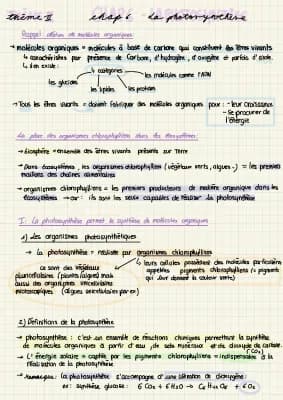 thème II chap 6 La photosynthèse
Rappel : notion de molécules organiques :
→ molécules organiques = molécules à base de carbone qui constituent les êtres vivants
↳ caractérisées par présence de carbone, d'hydrogène, d'oxygène et parfois d'azote.
↳ il en existe :
4 catégories
les glucides
les lipides
les protéines
les molécules comme l'ADN
→ Tous les êtres vivants → doivent fabriquer des molécules organiques pour : - leur croissance
- se procurer de l'énergie
La place des organismes chlorophylliens dans les écosystèmes :
→ biosphère = ensemble des êtres vivants présents sur Terre
→ Dans écosystèmes, les organismes chlorophylliens (végétaux verts, algues..) = les premiers
maillons des chaînes alimentaires
→ organismes chlorophylliens = les premiers producteurs de matière organique dans les
écosystèmes → car : ils sont les seuls capables de réaliser la photosynthèse
I : La photosynthèse permet la synthèse de molécules organiques
1) Les organismes photosynthétiques
→ La photosynthèse = réalisée par organismes chlorophylliens
ce sont des végétaux
pluricellulaires (plantes/algues) mais
aussi des organismes unicellulaires
microscopiques (algues unicellulaires par ex)
↳ leurs cellules possèdent des molécules particulières
appelées pigments chlorophylliens (= pigments
qui leur donnent la couleur verte)
2) Définitions de la photosynthèse
→ photosynthèse : c'est un ensemble de réactions chimiques permettant la synthèse
de molécules organiques à partir d'eau, de sels minéraux et de dioxyde de carbone.
(CO2)
→ L'énergie solaire = captée par les pigments chlorophylliens = indispensable à la
réalisation de la photosynthèse
→ Remarque : la photosynthèse s'accompagne d'une libération de dioxygène :
ex : synthèse glucose : 6 CO2 + 6 H2O → C6 H12 O6 + 6 O2